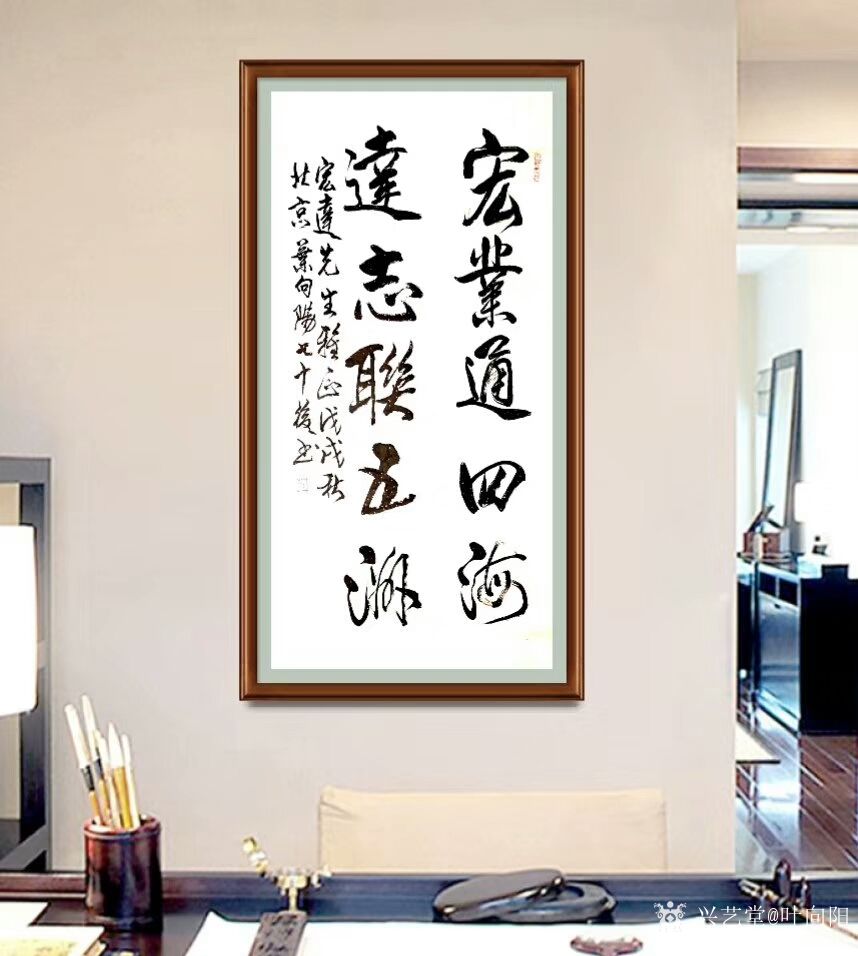 宏業通四海
達志聯五洲
宏達先生雅正戊戌秋
北京葉向陽七十後书
兴艺堂@叶向阳